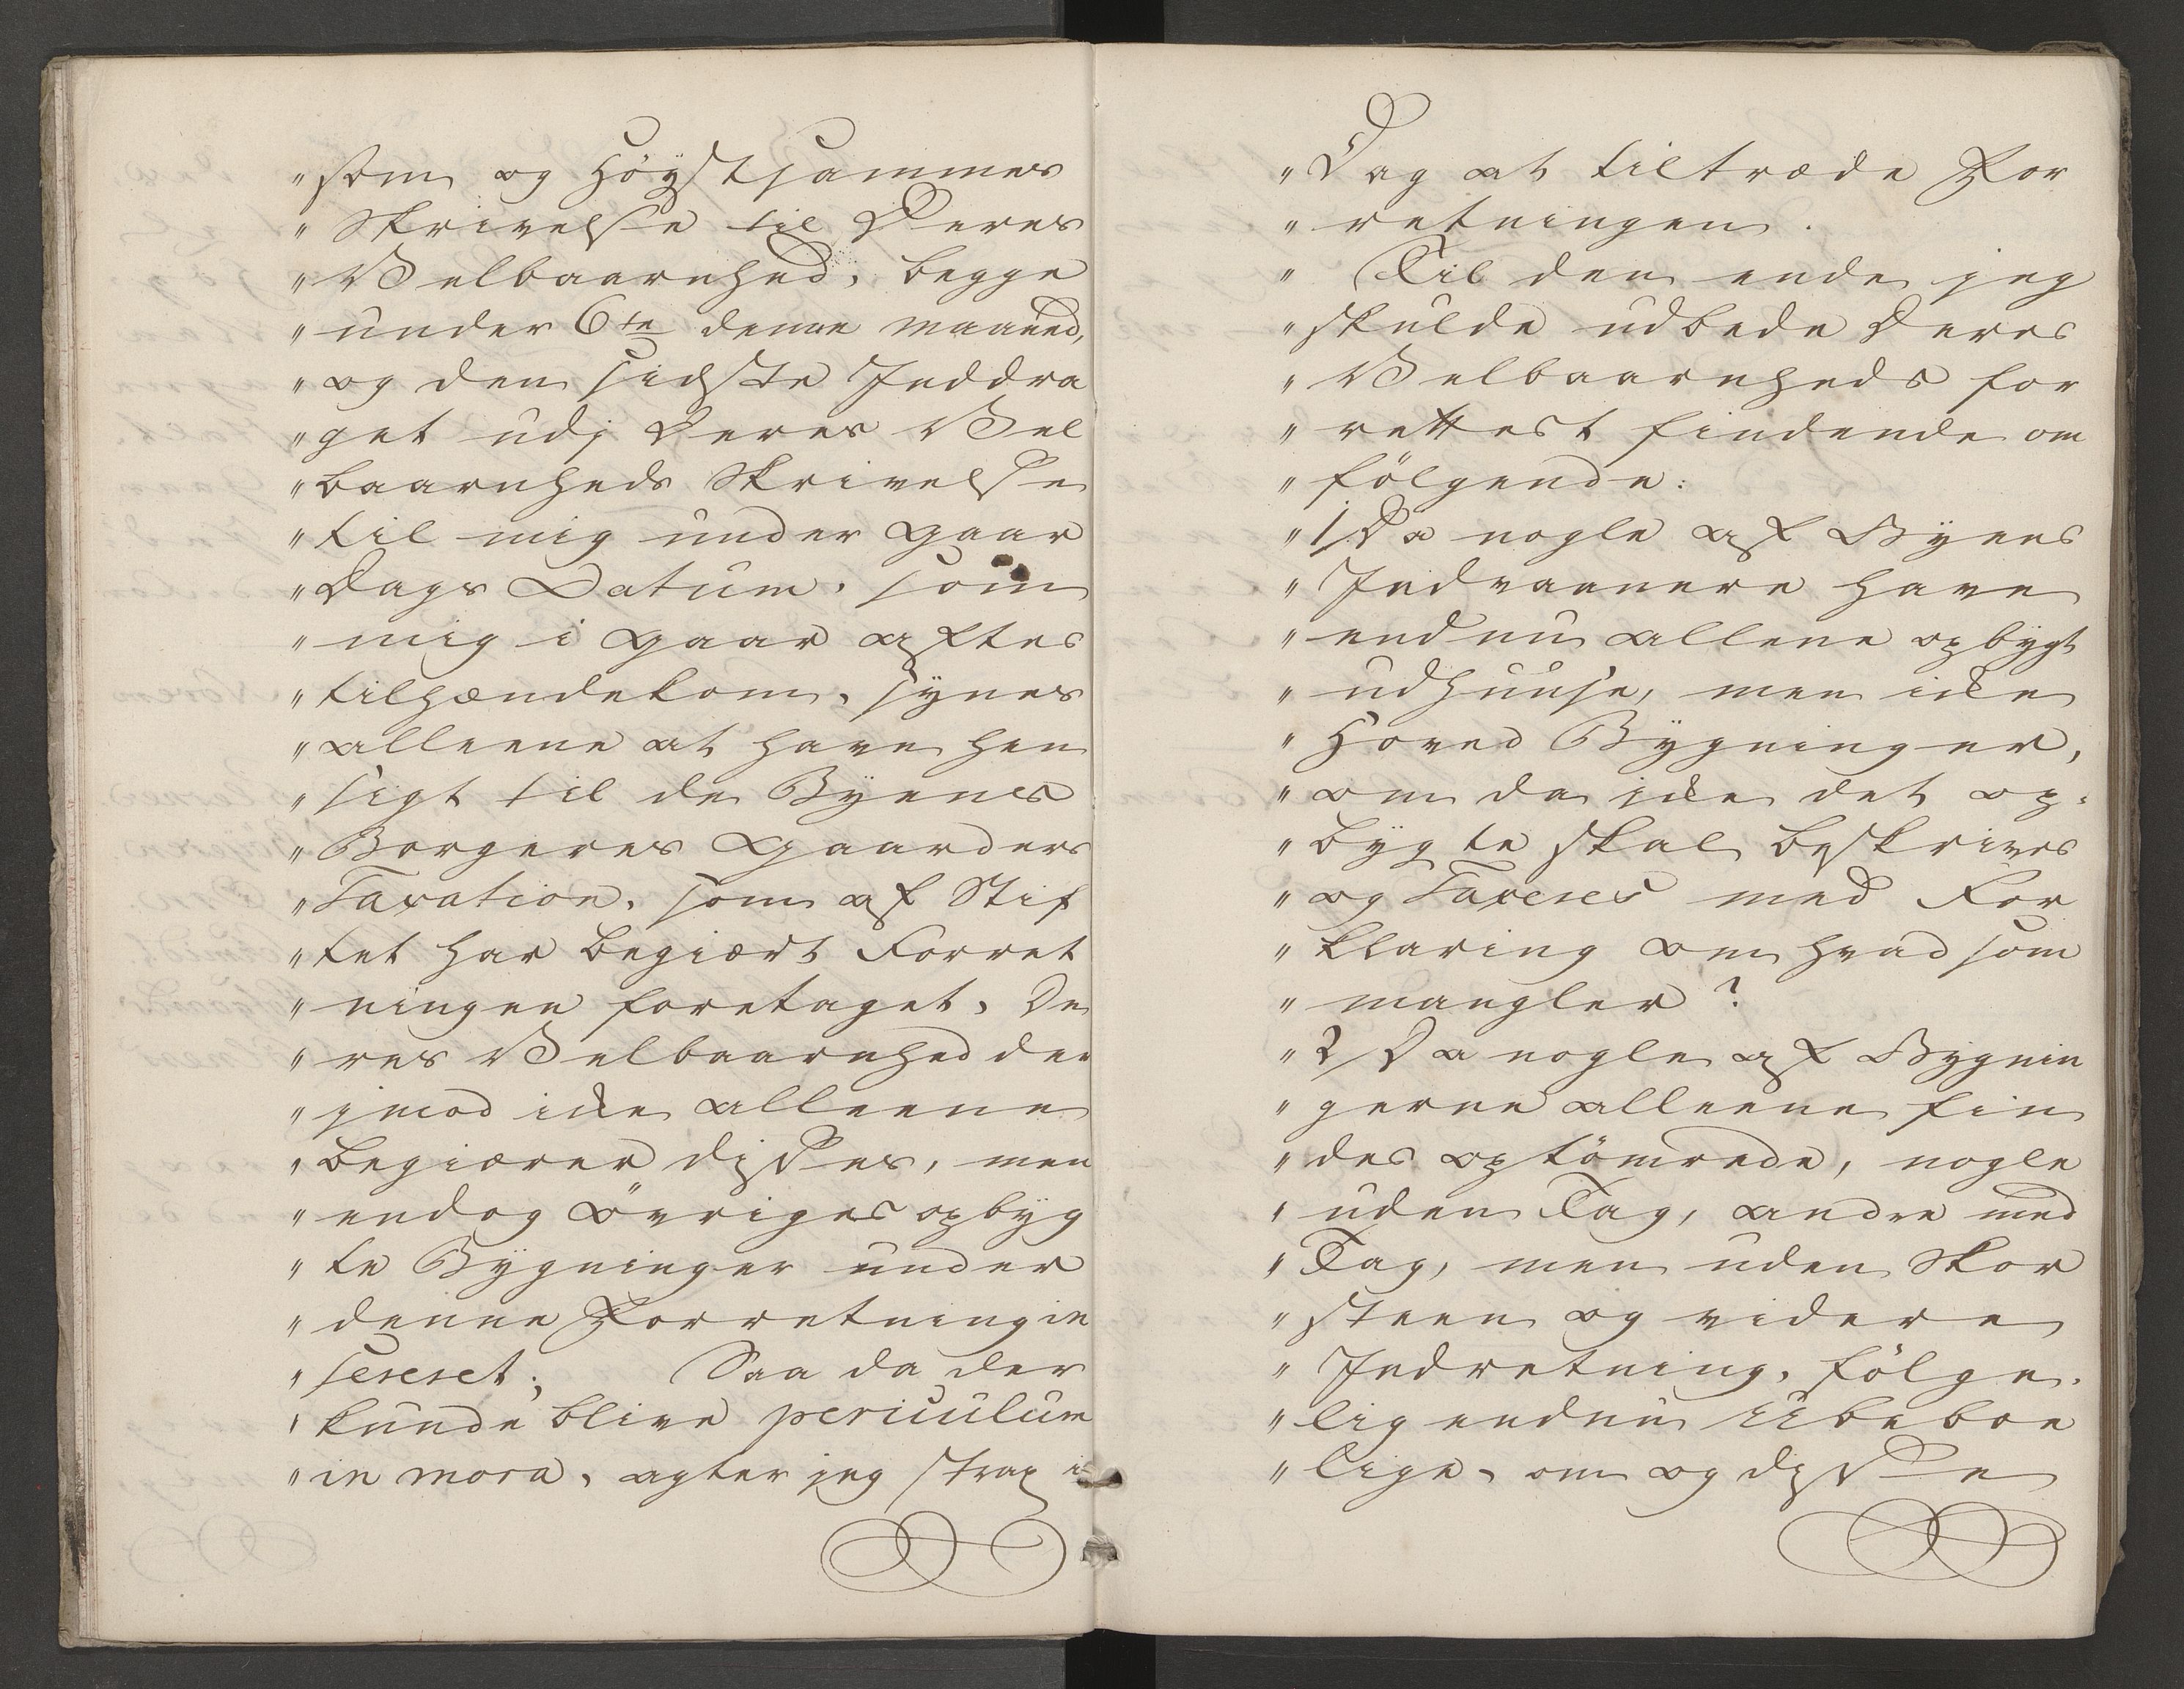 "som og Høystsammes
"Skrivelse til Deres
"Velbaarenhed, begge
"under 6te denne maaned,
"og den sidste Inddra
"get udj Deres Vel
"baarnheds Skrivelse
"til mig under Gaar
"Dags Datum, som
"mig i Gaar aftes
"tilhændekom, synes
"alleene at have hen
"sigt til de Byenes
"Borgeres Gaarders
"Taxation, som af Stif
"tet har begiært Forret
"ningen foretaget, De
"res Velbaarnhed der
"jmod ikke alleene
"begiærer disses, men
"endog øvriges opbyg
"te Bygninger under
"denne Forretning in
"sereret; Saa da der
"kunde blive periculum
"in mora, agter jeg strax i
"Dag at tiltræde For
"retningen.
"Til den ende jeg
"skulde udbede Deres
"Velbaarnheds for
"rettest findende om
"følgende:
"1/ Da nogle af Byens
"Indvaanere have
"endnu allene opbygt
"udhuuse, men ikke
"Hoved Bygninger,
"om da ikke det op-
"bygte skal beskrives
"og Taxeres med For
"klaring om hvad som
"mangler?
"2/ Da nogle af Bygnin
"gerne alleene fin
"des optømrede, nogle
"uden Tag, andre med
"Tag, men uden Skor
"steen og videre
"Indretning, følge-
"lig endnu Ubeboe
"lige, om og disse